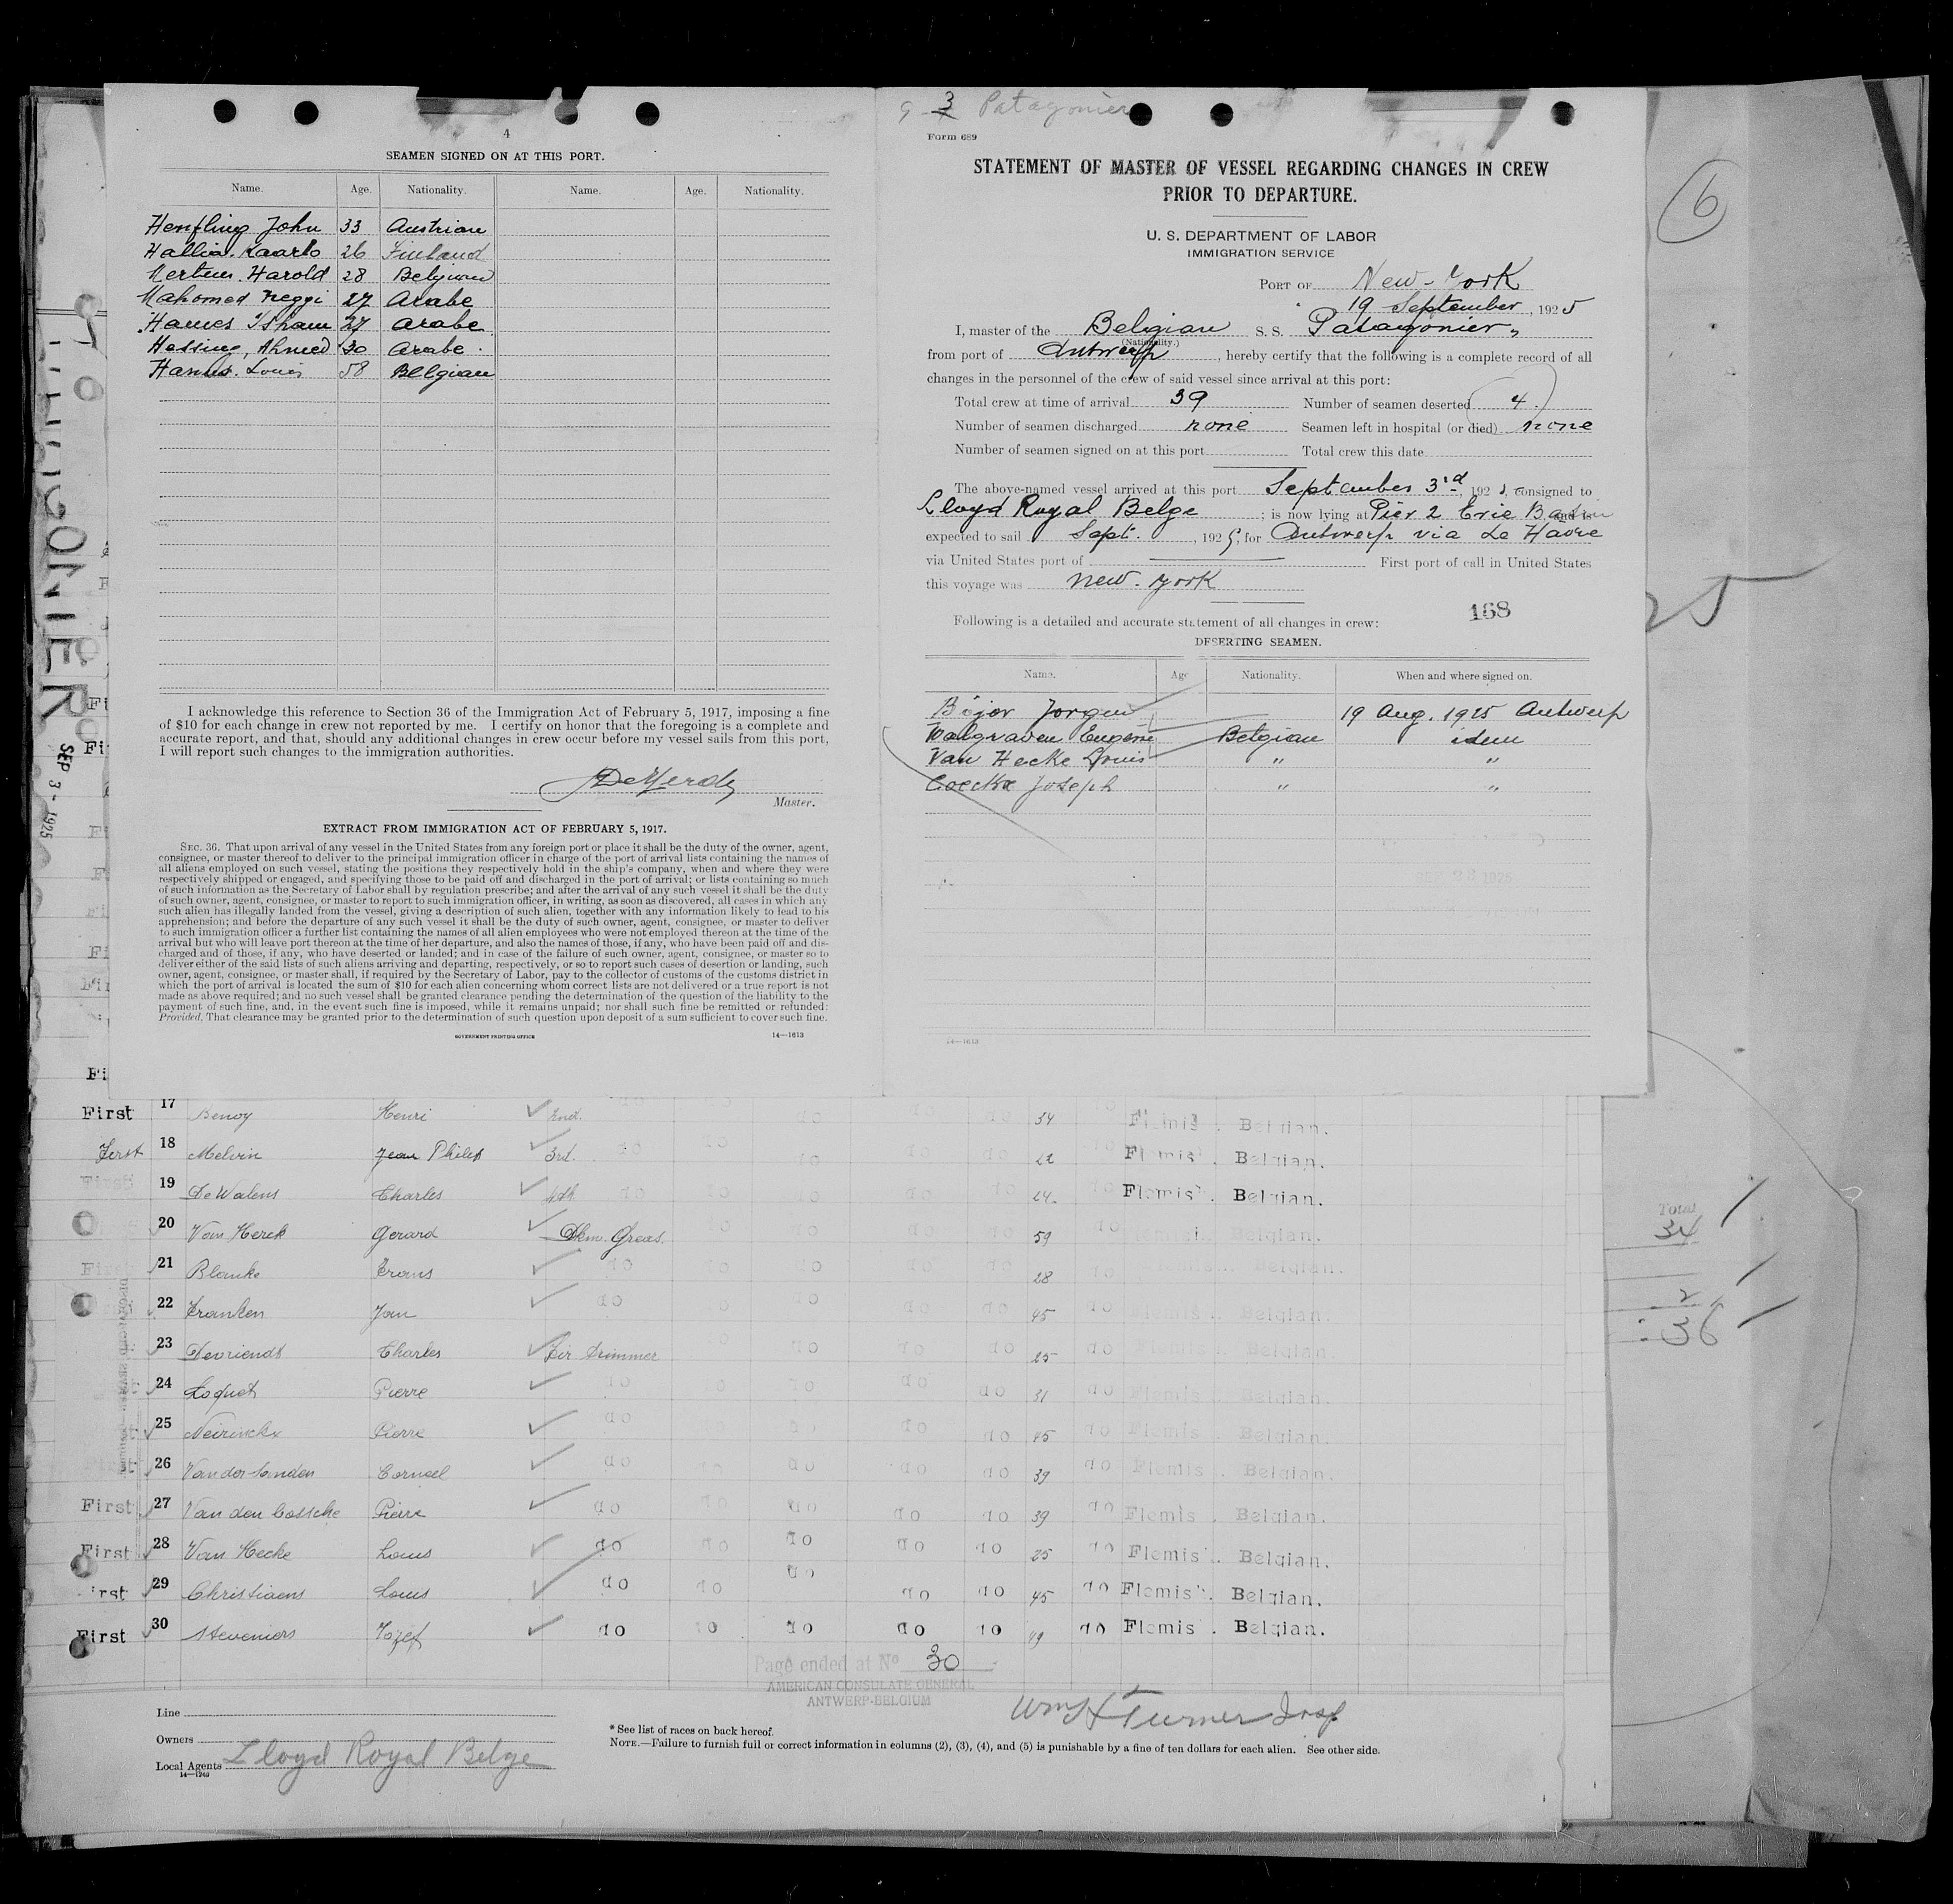 4
SEAMEN SIGNED ON AT THIS PORT.
Name. Age. Nationality. Name. Age. Nationality.
Henfling John 33 Austrian
Hallia. Kaarlo 26 Finland
Mertens. Harold 28 Belgian
Mahomed Neggi 27 Arabe
Hames Isham 27 Arabe
Hessing, Ahmed 30 Arabe.
Hanus. Louis 58 Belgian
I acknowledge this reference to Section 36 of the Immigration Act of February 5, 1917, imposing a fine
of $10 for each change in crew not reported by me. I certify on honor that the foregoing is a complete and
accurate report, and that, should any additional changes in crew occur before my vessel sails from this port,
I will report such changes to the immigration authorities.
Master.
EXTRACT FROM IMMIGRATION ACT OF FEBRUARY 5, 1917.
SEC. 36. That upon arrival of any vessel in the United States from any foreign port or place it shall be the duty of the owner, agent,
consignee, or master thereof to deliver to the principal immigration officer in charge of the port of arrival lists containing the names of
all aliens employed on such vessel, stating the positions they respectively hold in the ship's company, when and where they were
respectively shipped or engaged, and specifying those to be paid off and discharged in the port of arrival; or lists containing so much
of such information as the Secretary of Labor shall by regulation prescribe; and after the arrival of any such vessel it shall be the duty
of such owner, agent, consignee, or master to report to such immigration officer, in writing, as soon as discovered, all cases in which any
such alien has illegally landed from the vessel, giving a description of such alien, together with any information likely to lead to his
apprehension; and before the departure of any such vessel it shall be the duty of such owner, agent, consignee, or master to deliver
to such immigration officer a further list containing the names of all alien employees who were not employed thereon at the time of the
arrival but who will leave port thereon at the time of her departure, and also the names of those, if any, who have been paid off and dis-
charged and of those, if any, who have deserted or landed; and in case of the failure of such owner, agent, consignee, or master so to
deliver either of the said lists of such aliens arriving and departing, respectively, or so to report such cases of desertion or landing, such
owner, agent, consignee, or master shall, if required by the Secretary of Labor, pay to the collector of customs of the customs district in
which the port of arrival is located the sum of $10 for each alien concerning whom correct lists are not delivered or a true report is not
made as above required; and no such vessel shall be granted clearance pending the determination of the question of the liability to the
payment of such fine, and, in the event such fine is imposed, while it remains unpaid; nor shall such fine be remitted or refunded:
Provided, That clearance may be granted prior to the determination of such question upon deposit of a sum sufficient to cover such fine.
GOVERNMENT PRINTING OFFICE 14—1613
3 Patagonier
Form 689
STATEMENT OF MASTER OF VESSEL REGARDING CHANGES IN CREW
PRIOR TO DEPARTURE.
U. S. DEPARTMENT OF LABOR
IMMIGRATION SERVICE
PORT OF New-York
19 September, 1925
I, master of the Belgian S. S. "Patagonier"
(Nationality.)
from port of Antwerp, hereby certify that the following is a complete record of all
changes in the personnel of the crew of said vessel since arrival at this port:
Total crew at time of arrival 39 Number of seamen deserted 4.
Number of seamen discharged none Seamen left in hospital (or died) none
Number of seamen signed on at this port Total crew this date
The above-named vessel arrived at this port September 3rd, 192 , consigned to
Lloyd Royal Belge; is now lying at Pier 2 Erie Basin and is
expected to sail Sept., 1925, for Antwerp via Le Havre
via United States port of First port of call in United States
this voyage was New-York
168
Following is a detailed and accurate statement of all changes in crew:
DESERTING SEAMEN.
Name. Age Nationality. When and where signed on.
Bojor Jorgen 19 Aug. 1925 Antwerp
Walgraven Eugene Belgian idem
Van Hecke Louis " "
Coeckx Joseph " "
14—1613
6
PATAGONIER
SEP 3 - 1925
First 17 Benoy Henri 2nd. do do 34 Flemis . Belgian.
First 18 Melvin Jean Philip 3rd. do do 22 Flemis . Belgian.
First 19 DeWalens Charles 4th do do 24 Flemis . Belgian.
20 Van Herck Gerard Dkm. Greas. do 59 do Belgian.
First 21 Blanke Frans do do 28 do Belgian.
22 Franken Jan do do 45 do Flemis . Belgian.
23 Devriendt Charles Fir Trimmer do do do 25 do Flemis Belgian
24 Loquet Pierre do do do do 31 do Flemis . Belgian.
25 Neirinckx Pierre do do do 45 do Flemis . Belgian.
First 26 Van der Linden Corneel do do do do 39 do Flemis . Belgian.
First 27 Van den Bossche Pierre do do do do do 39 do Flemis . Belgian.
First 28 Van Hecke Louis do do do do do 25 do Flemis . Belgian.
First 29 Christiaens Louis do do do do do 45 do Flemis . Belgian.
First 30 Steveniers Jozef do do do do do 49 do Flemis . Belgian.
Total
34
2
36
Page ended at No 30
AMERICAN CONSULATE GENERAL
ANTWERP-BELGIUM
Wm H Turner Insp
Line
Owners
Local Agents Lloyd Royal Belge
14—1240
* See list of races on back hereof.
NOTE.—Failure to furnish full or correct information in columns (2), (3), (4), and (5) is punishable by a fine of ten dollars for each alien. See other side.